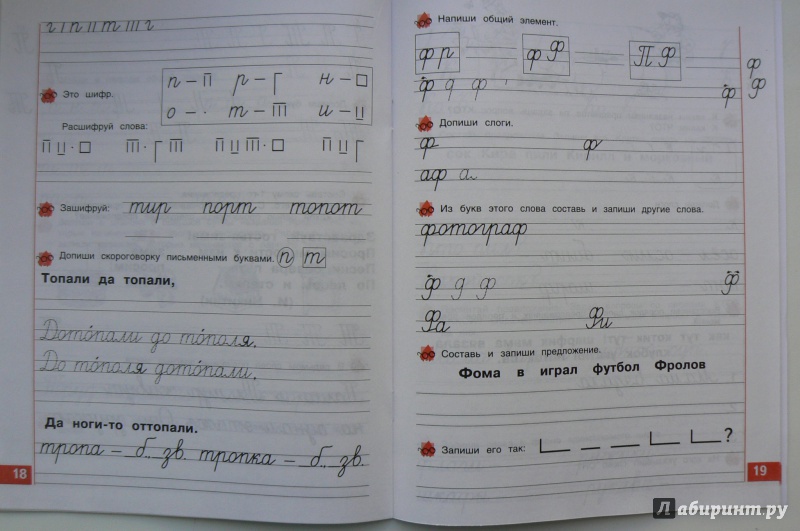 п – п̅ р – Г н – □
Это шифр.
о – · т – Ш и – ц
Расшифруй слова:
Зашифруй: тир порт топот
Допиши скороговорку письменными буквами. п т
Топали да топали,
Дото́пали до то́поля.
До то́поля дото́пали.
Да ноги-то оттопали.
тропа – б., зв. тропка – б., зв.
18
Напиши общий элемент.
ф р ф Ф П Ф
ф
ф д ф ф Ф
Допиши слоги.
ф ф
аф а
Из букв этого слова составь и запиши другие слова.
фотограф
ф д ф ф
Фа Фи
Составь и запиши предложение.
Фома в играл футбол Фролов
Запиши его так: ?
19
Лабиринт.ру